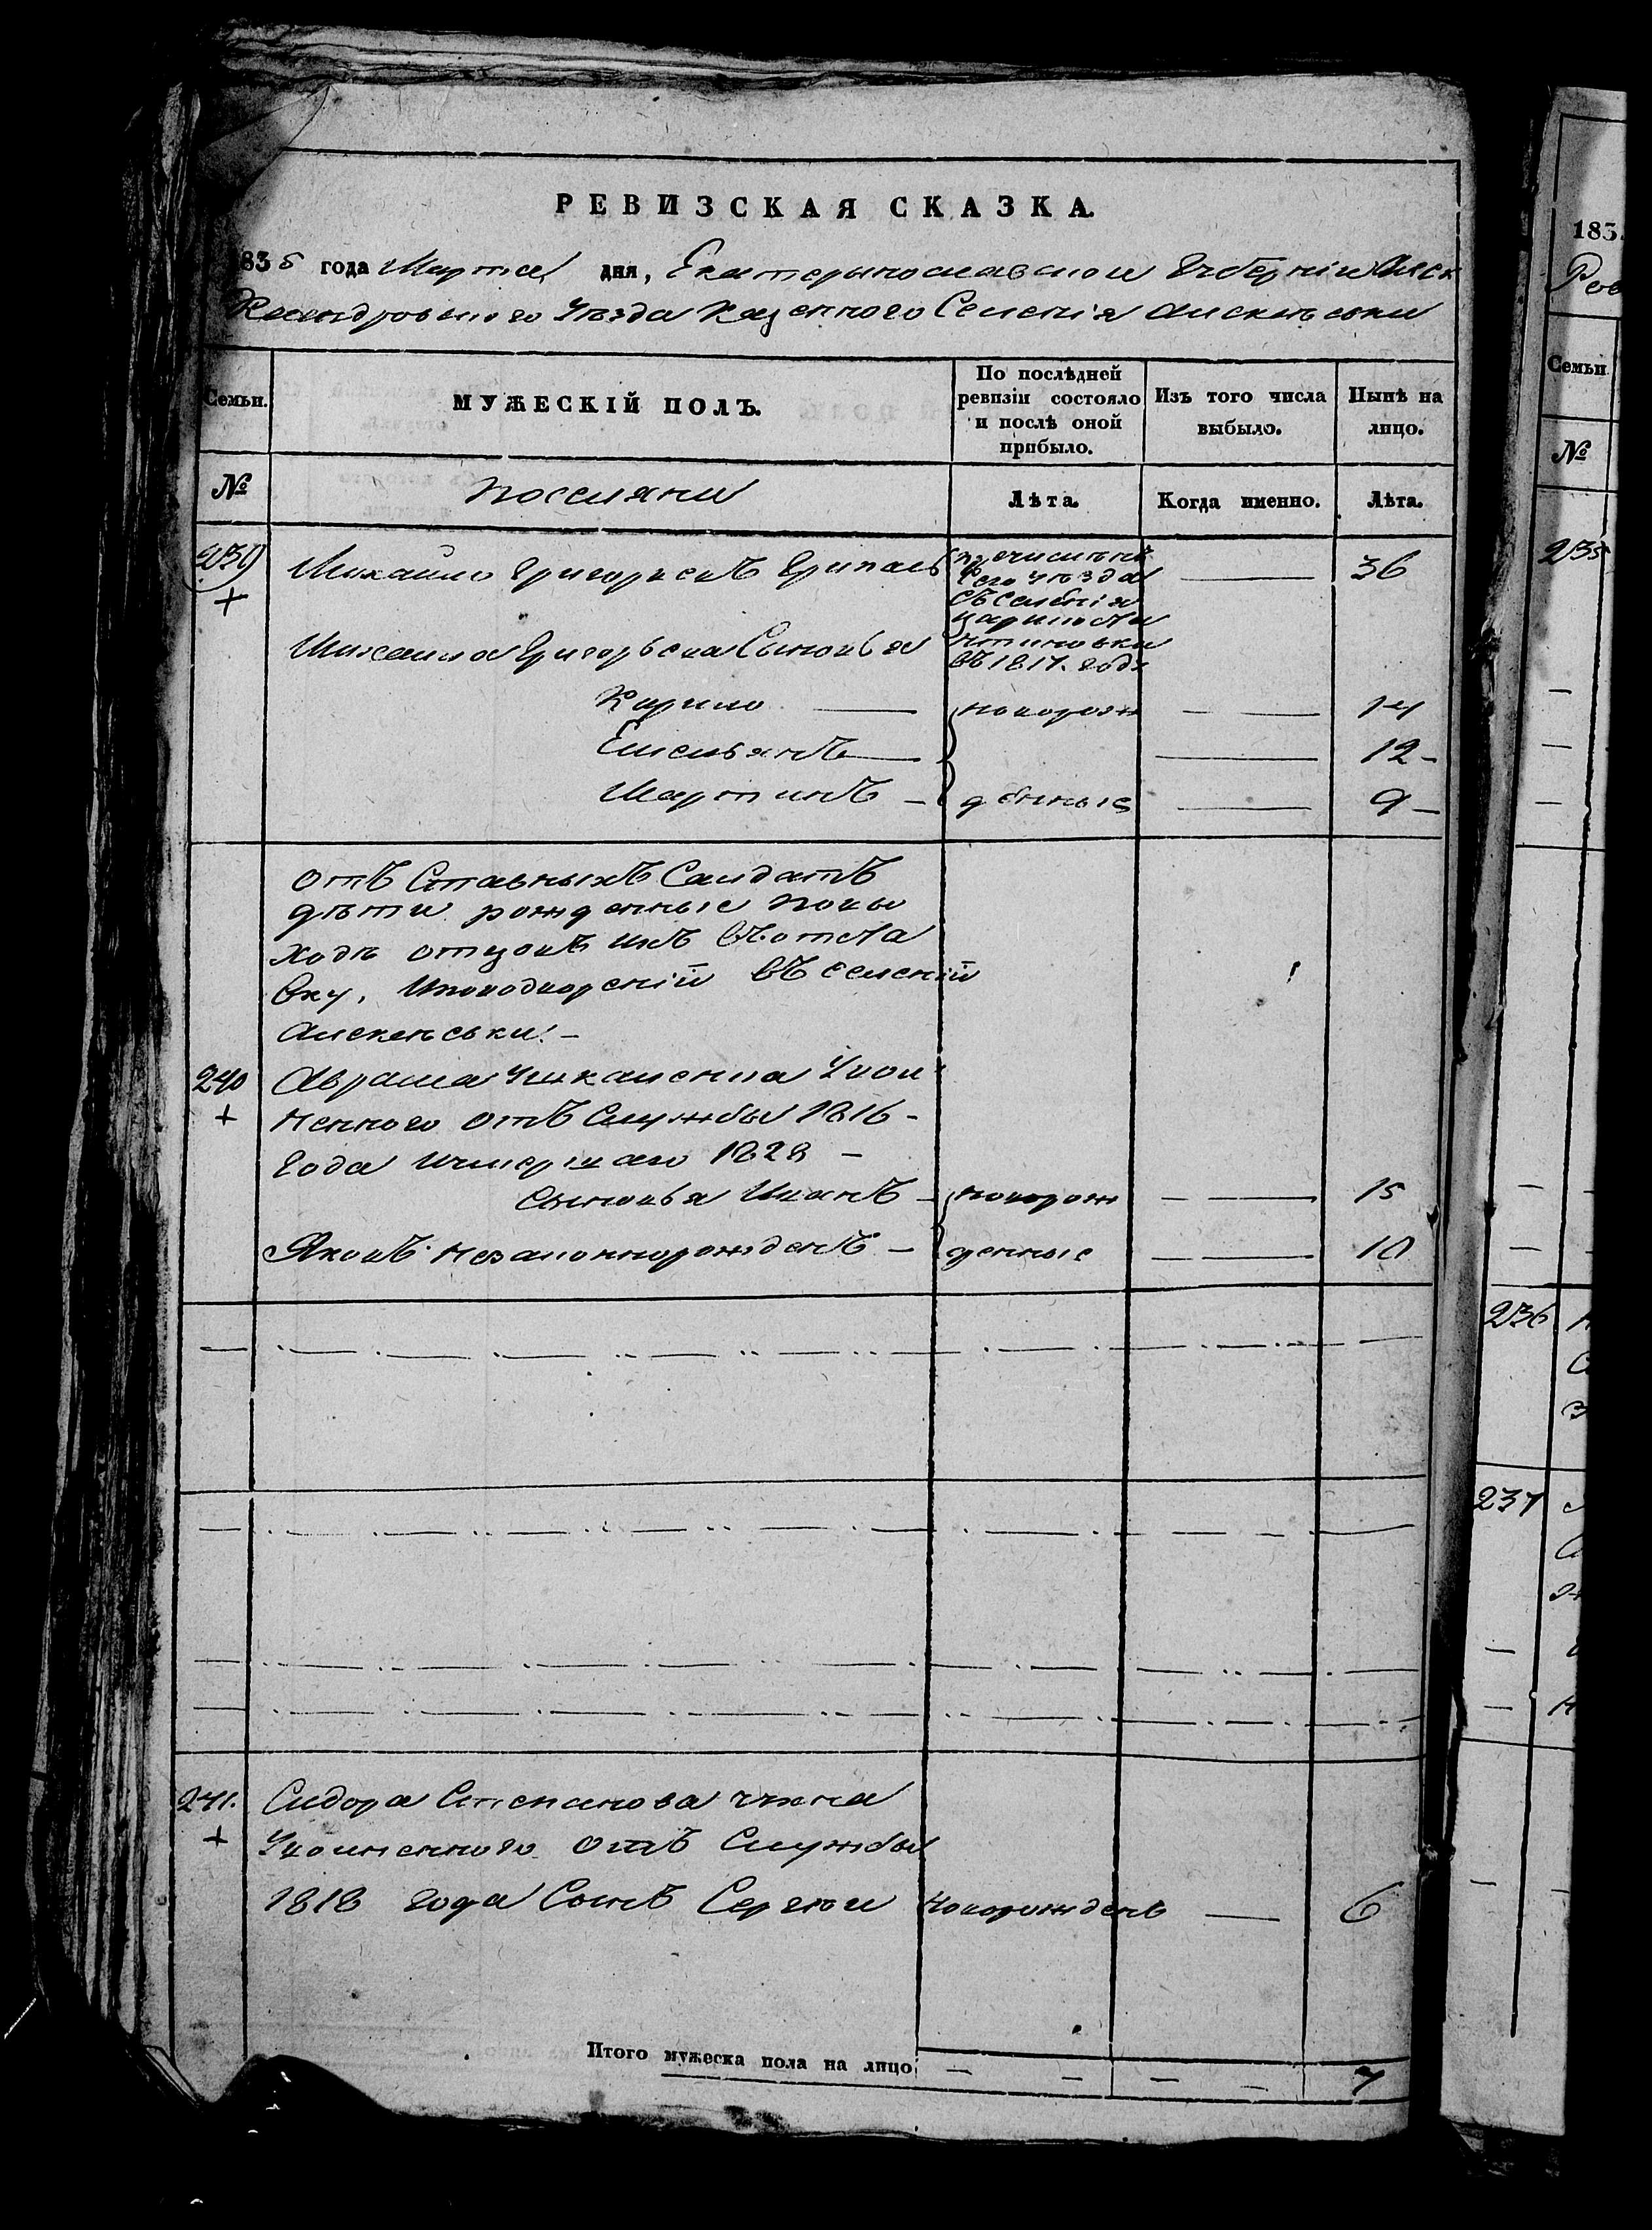 РЕВИЗСКАЯ СКАЗКА.
835 года Марта дня, Екатеринославской Губерніи Алек
сандровского Уѣзда Казенного Селенія Алексѣевки
Семьи.
МУЖЕСКІЙ ПОЛЪ.
По послѣдней
ревизіи состояло
и послѣ оной
прибыло.
Изъ того числа
выбыло.
Нынѣ на
лицо.
№
Поселяни
Лѣта.
Когда именно.
Лѣта.
239
Михайло Григорьевъ 36
сего уѣзда
съ селенія
въ 1817. годѣ
Михайла Григорьева Сыновья
Кирило новорож 14
Емельянъ 12
Мартинъ денные 9
Отъ Ставныхъ Салдатъ
дѣти рожденные повы
ходѣ отцовъ ихъ въ отста
вку, въ селеніи
Алексѣевки.
240 Аврама Уво
ленного отъ Службы 1816
года умершаго 1828
Сыновья Иванъ новорож 15
Яковъ незаконнорожденъ денные 10
241. Сидора Степанова
Уволенного отъ Службы
1818 года Сынъ Сергѣи новорожденъ 6
Итого мужеска пола на лицо 7
183
Семьи
№
235
236
237